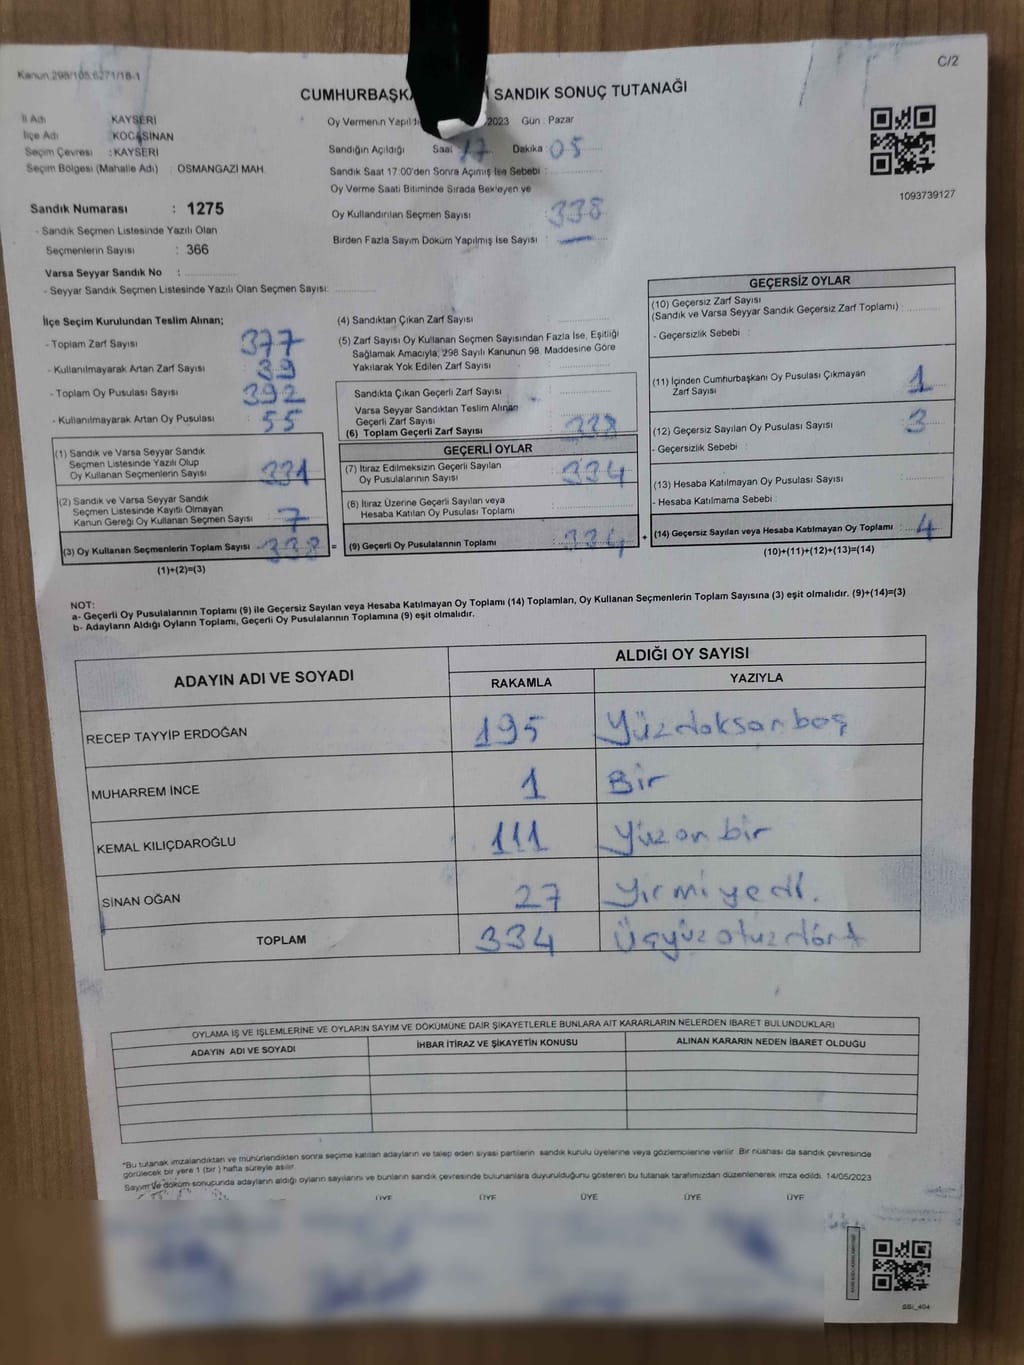 Kanun 298/105,6271/18-1
C/2
CUMHURBAŞKA SANDIK SONUÇ TUTANAĞI
İl Adı KAYSERİ
İlçe Adı KOCASİNAN
Seçim Çevresi : KAYSERİ
Seçim Bölgesi (Mahalle Adı) : OSMANGAZİ MAH.
Sandık Numarası : 1275
- Sandık Seçmen Listesinde Yazılı Olan
Seçmenlerin Sayısı : 366
Varsa Seyyar Sandık No :
- Seyyar Sandık Seçmen Listesinde Yazılı Olan Seçmen Sayısı:
Oy Vermenin Yapıldı 2023 Gün : Pazar
Sandığın Açıldığı Saat 17 Dakika 05
Sandık Saat 17.00'den Sonra Açmış İse Sebebi :
Oy Verme Saati Bitiminde Sırada Bekleyen ve
Oy Kullandırılan Seçmen Sayısı : 338
Birden Fazla Sayım Döküm Yapılmış İse Sayısı :
1093739127
İlçe Seçim Kurulundan Teslim Alınan;
- Toplam Zarf Sayısı 377
- Kullanılmayarak Artan Zarf Sayısı 39
- Toplam Oy Pusulası Sayısı 392
- Kullanılmayarak Artan Oy Pusulası 55
(1) Sandık ve Varsa Seyyar Sandık
Seçmen Listesinde Yazılı Olup
Oy Kullanan Seçmenlerin Sayısı 331
(2) Sandık ve Varsa Seyyar Sandık
Seçmen Listesinde Kayıtlı Olmayan
Kanun Gereği Oy Kullanan Seçmen Sayısı 7
(3) Oy Kullanan Seçmenlerin Toplam Sayısı 338 =
(1)+(2)=(3)
(4) Sandıktan Çıkan Zarf Sayısı
(5) Zarf Sayısı Oy Kullanan Seçmen Sayısından Fazla İse, Eşitliği
Sağlamak Amacıyla, 298 Sayılı Kanunun 98. Maddesine Göre
Yakılarak Yok Edilen Zarf Sayısı
Sandıkta Çıkan Geçerli Zarf Sayısı
Varsa Seyyar Sandıktan Teslim Alınan
Geçerli Zarf Sayısı
(6) Toplam Geçerli Zarf Sayısı 338
GEÇERLİ OYLAR
(7) İtiraz Edilmeksizin Geçerli Sayılan
Oy Pusulalarının Sayısı 334
(8) İtiraz Üzerine Geçerli Sayılan veya
Hesaba Katılan Oy Pusulası Toplamı
(9) Geçerli Oy Pusulalarının Toplamı 334 +
GEÇERSİZ OYLAR
(10) Geçersiz Zarf Sayısı
(Sandık ve Varsa Seyyar Sandık Geçersiz Zarf Toplamı) :
- Geçersizlik Sebebi :
(11) İçinden Cumhurbaşkanı Oy Pusulası Çıkmayan
Zarf Sayısı 1
(12) Geçersiz Sayılan Oy Pusulası Sayısı 3
- Geçersizlik Sebebi :
(13) Hesaba Katılmayan Oy Pusulası Sayısı
- Hesaba Katılmama Sebebi :
(14) Geçersiz Sayılan veya Hesaba Katılmayan Oy Toplamı : 4
(10)+(11)+(12)+(13)=(14)
NOT:
a- Geçerli Oy Pusulalarının Toplamı (9) ile Geçersiz Sayılan veya Hesaba Katılmayan Oy Toplamı (14) Toplamları, Oy Kullanan Seçmenlerin Toplam Sayısına (3) eşit olmalıdır. (9)+(14)=(3)
b- Adayların Aldığı Oyların Toplamı, Geçerli Oy Pusulalarının Toplamına (9) eşit olmalıdır.
ADAYIN ADI VE SOYADI ALDIĞI OY SAYISI
RAKAMLA YAZIYLA
RECEP TAYYİP ERDOĞAN 195 Yüzdoksanbeş
MUHARREM İNCE 1 Bir
KEMAL KILIÇDAROĞLU 111 Yüzonbir
SİNAN OĞAN 27 Yirmiyedi.
TOPLAM 334 Üçyüzotuzdört
OYLAMA İŞ VE İŞLEMLERİNE VE OYLARIN SAYIM VE DÖKÜMÜNE DAİR ŞİKAYETLERLE BUNLARA AİT KARARLARIN NELERDEN İBARET BULUNDUKLARI
ADAYIN ADI VE SOYADI İHBAR İTİRAZ VE ŞİKAYETİN KONUSU ALINAN KARARIN NEDEN İBARET OLDUĞU
*Bu tutanak imzalandıktan ve mühürlendikten sonra seçime katılan adayların ve talep eden siyasi partilerin sandık kurulu üyelerine veya gözlemcilerine verilir. Bir nüshası da sandık çevresinde
görülecek bir yere 1 (bir) hafta süreyle asılır.
Sayım ve döküm sonucunda adayların aldığı oyların sayılarını ve bunların sandık çevresinde bulunanlara duyurulduğunu gösteren bu tutanak tarafımızdan düzenlenerek imza edildi. 14/05/2023
ÜYE ÜYE ÜYE ÜYE ÜYE